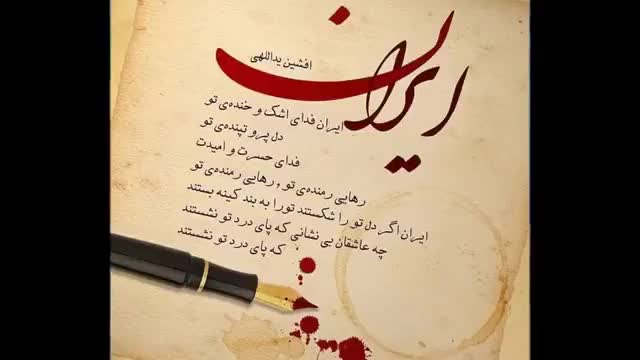 ایران
افشین یداللهی
ایران فدای اشک و خنده‌ی تو
دل پر و تپنده‌ی تو
فدای حسرت و امیدت
رهایی رمنده‌ی تو , رهایی رمنده‌ی تو
ایران اگر دل تو را شکستند تورا به بند کینه بستند
چه عاشقان بی نشانی که پای درد تو نشستند
که پای درد تو نشستند